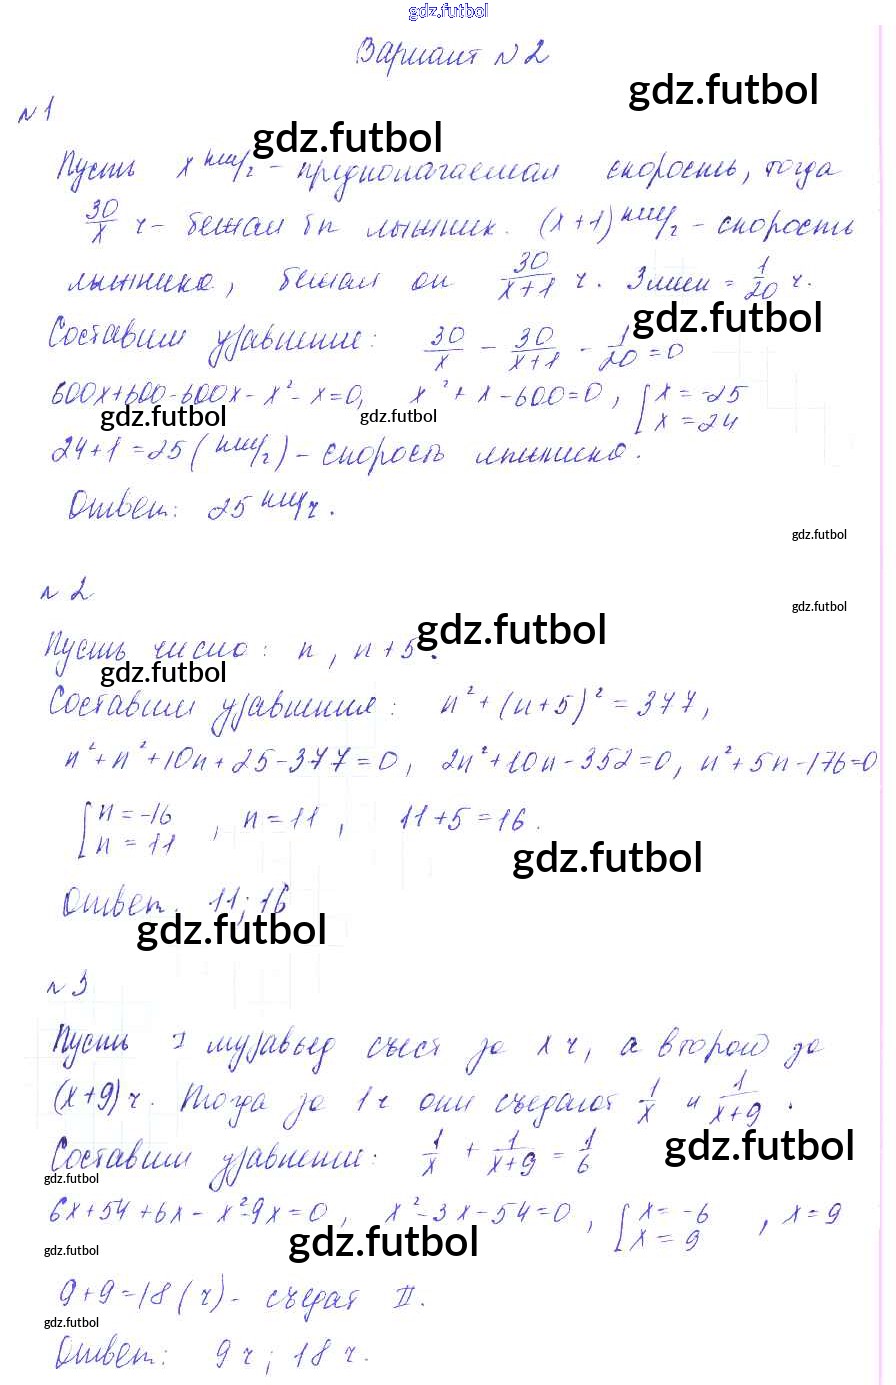 gdz.futbol
Вариант №2
№1
gdz.futbol
gdz.futbol
Пусть x км/ч - предполагаемая скорость, тогда
30/x ч - бежал бы лыжник. (x+1) км/ч - скорость
лыжника, бежал он 30/x+1 ч. 3 мин = 1/20 ч.
gdz.futbol
Составим уравнение: 30/x - 30/x+1 - 1/20 = 0
600x+600-600x-x²-x=0, x²+x-600=0, [x=-25 x=24
gdz.futbol
gdz.futbol
24+1=25 (км/ч) - скорость лыжника.
Ответ: 25 км/ч.
gdz.futbol
№2
gdz.futbol
Пусть число: n, n+5.
gdz.futbol
gdz.futbol
Составим уравнения: n²+(n+5)²=377,
n²+n²+10n+25-377=0, 2n²+10n-352=0, n²+5n-176=0
[n=-16 n=11, n=11, 11+5=16.
gdz.futbol
Ответ. 11; 16
gdz.futbol
№3
Пусть I муравьед съест за x ч, а второй за
(x+9) ч. Тогда за 1 ч они съедают 1/x и 1/x+9.
gdz.futbol
Составим уравнение: 1/x + 1/x+9 = 1/6
gdz.futbol
6x+54+6x-x²-9x=0, x²-3x-54=0, [x=-6 x=9, x=9
gdz.futbol
gdz.futbol
9+9=18 (ч) - съедат II.
gdz.futbol
Ответ: 9 ч; 18 ч.